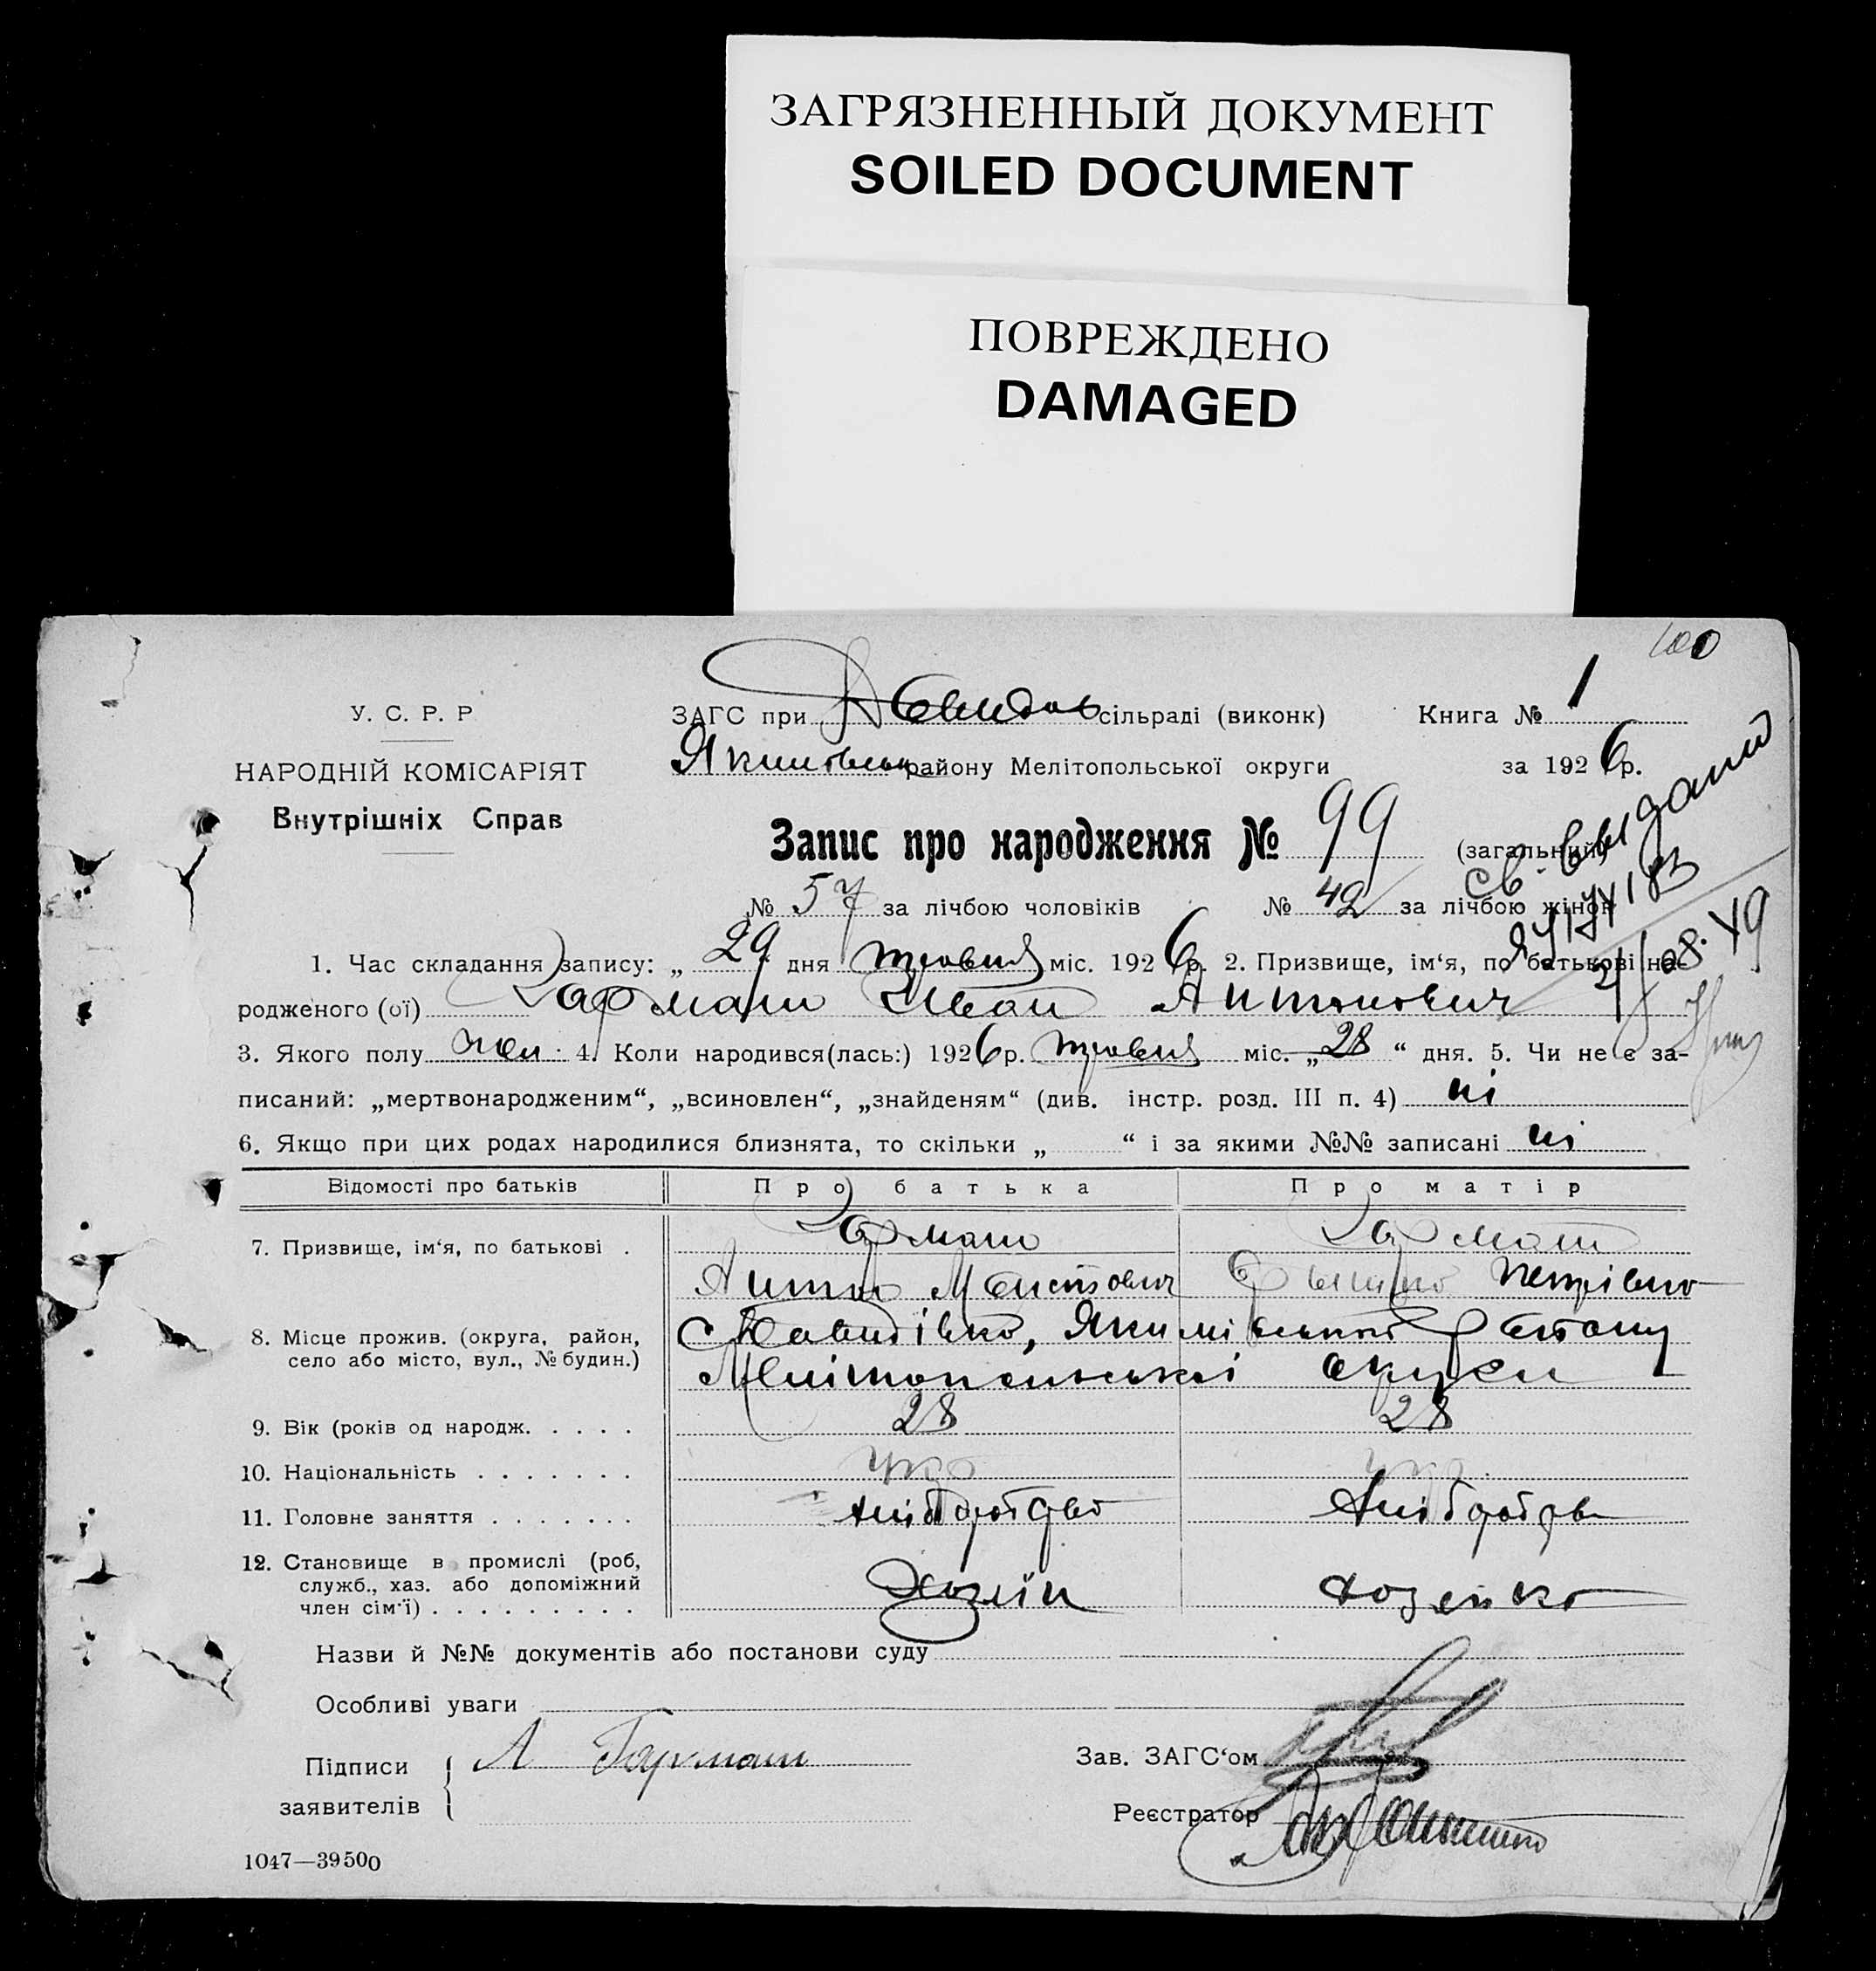 ЗАГРЯЗНЕННЫЙ ДОКУМЕНТ
SOILED DOCUMENT
ПОВРЕЖДЕНО
DAMAGED
100
У. С. Р. Р
НАРОДНІЙ КОМІСАРІЯТ
Внутрішніх Справ
ЗАГС при Давидов сільраді (виконк) Книга № 1
Якимовськ району Мелітопольської округи за 1926 р.
Запис про народження № 99 (загальний)
№ 57 за лічбою чоловіків № 42 за лічбою жінок
св. выдано
1. Час складання запису: „ 29 дня травня міс. 1926 р. 2. Призвище, ім‘я, по батькові на-
родженого (ої) Гармаш Иван Антонович
3. Якого полу 4. Коли народився(лась:) 1926 р. травня міс. „28 “ дня. 5. Чи не є за-
писаний: „мертвонародженим“, „всиновлен“, „знайденям“ (див. інстр. розд. III п. 4) ні
6. Якщо при цих родах народилися близнята, то скільки „ “ і за якими №№ записані ні
Відомості про батьків Про батька Про матір
7. Призвище, ім‘я, по батькові . Гармаш Гармаш
Антон Петрівна
8. Місце прожив. (округа, район, Давидівка, Якимівського Району
село або місто, вул., № будин.) Мелітопольської округи
9. Вік (років од народж. . . . . 28 28
10. Національність . . . . . . . укр укр
11. Головне заняття . . . . . . . хліборобство хлібороб
12. Становище в промислі (роб,
служб., хаз. або допоміжний
член сім‘ї) . . . . . . . . . Хозяїн хозяйка
Назви й №№ документів або постанови суду
Особливі уваги
Підписи А Гармаш Зав. ЗАГС‘ом
заявителів Реєстратор
1047—39500